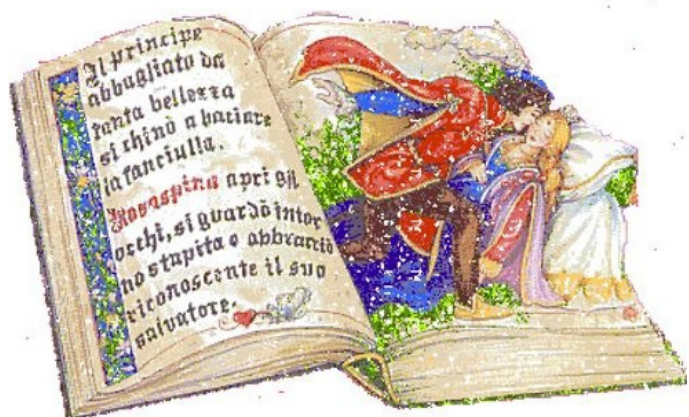 Il Principe
abbagliato da
tanta bellezza
si chinò a baciare
la fanciulla.
Rosaspina aprì gli
occhi, si guardò intor
no stupita e abbracciò
riconoscente il suo
salvatore.